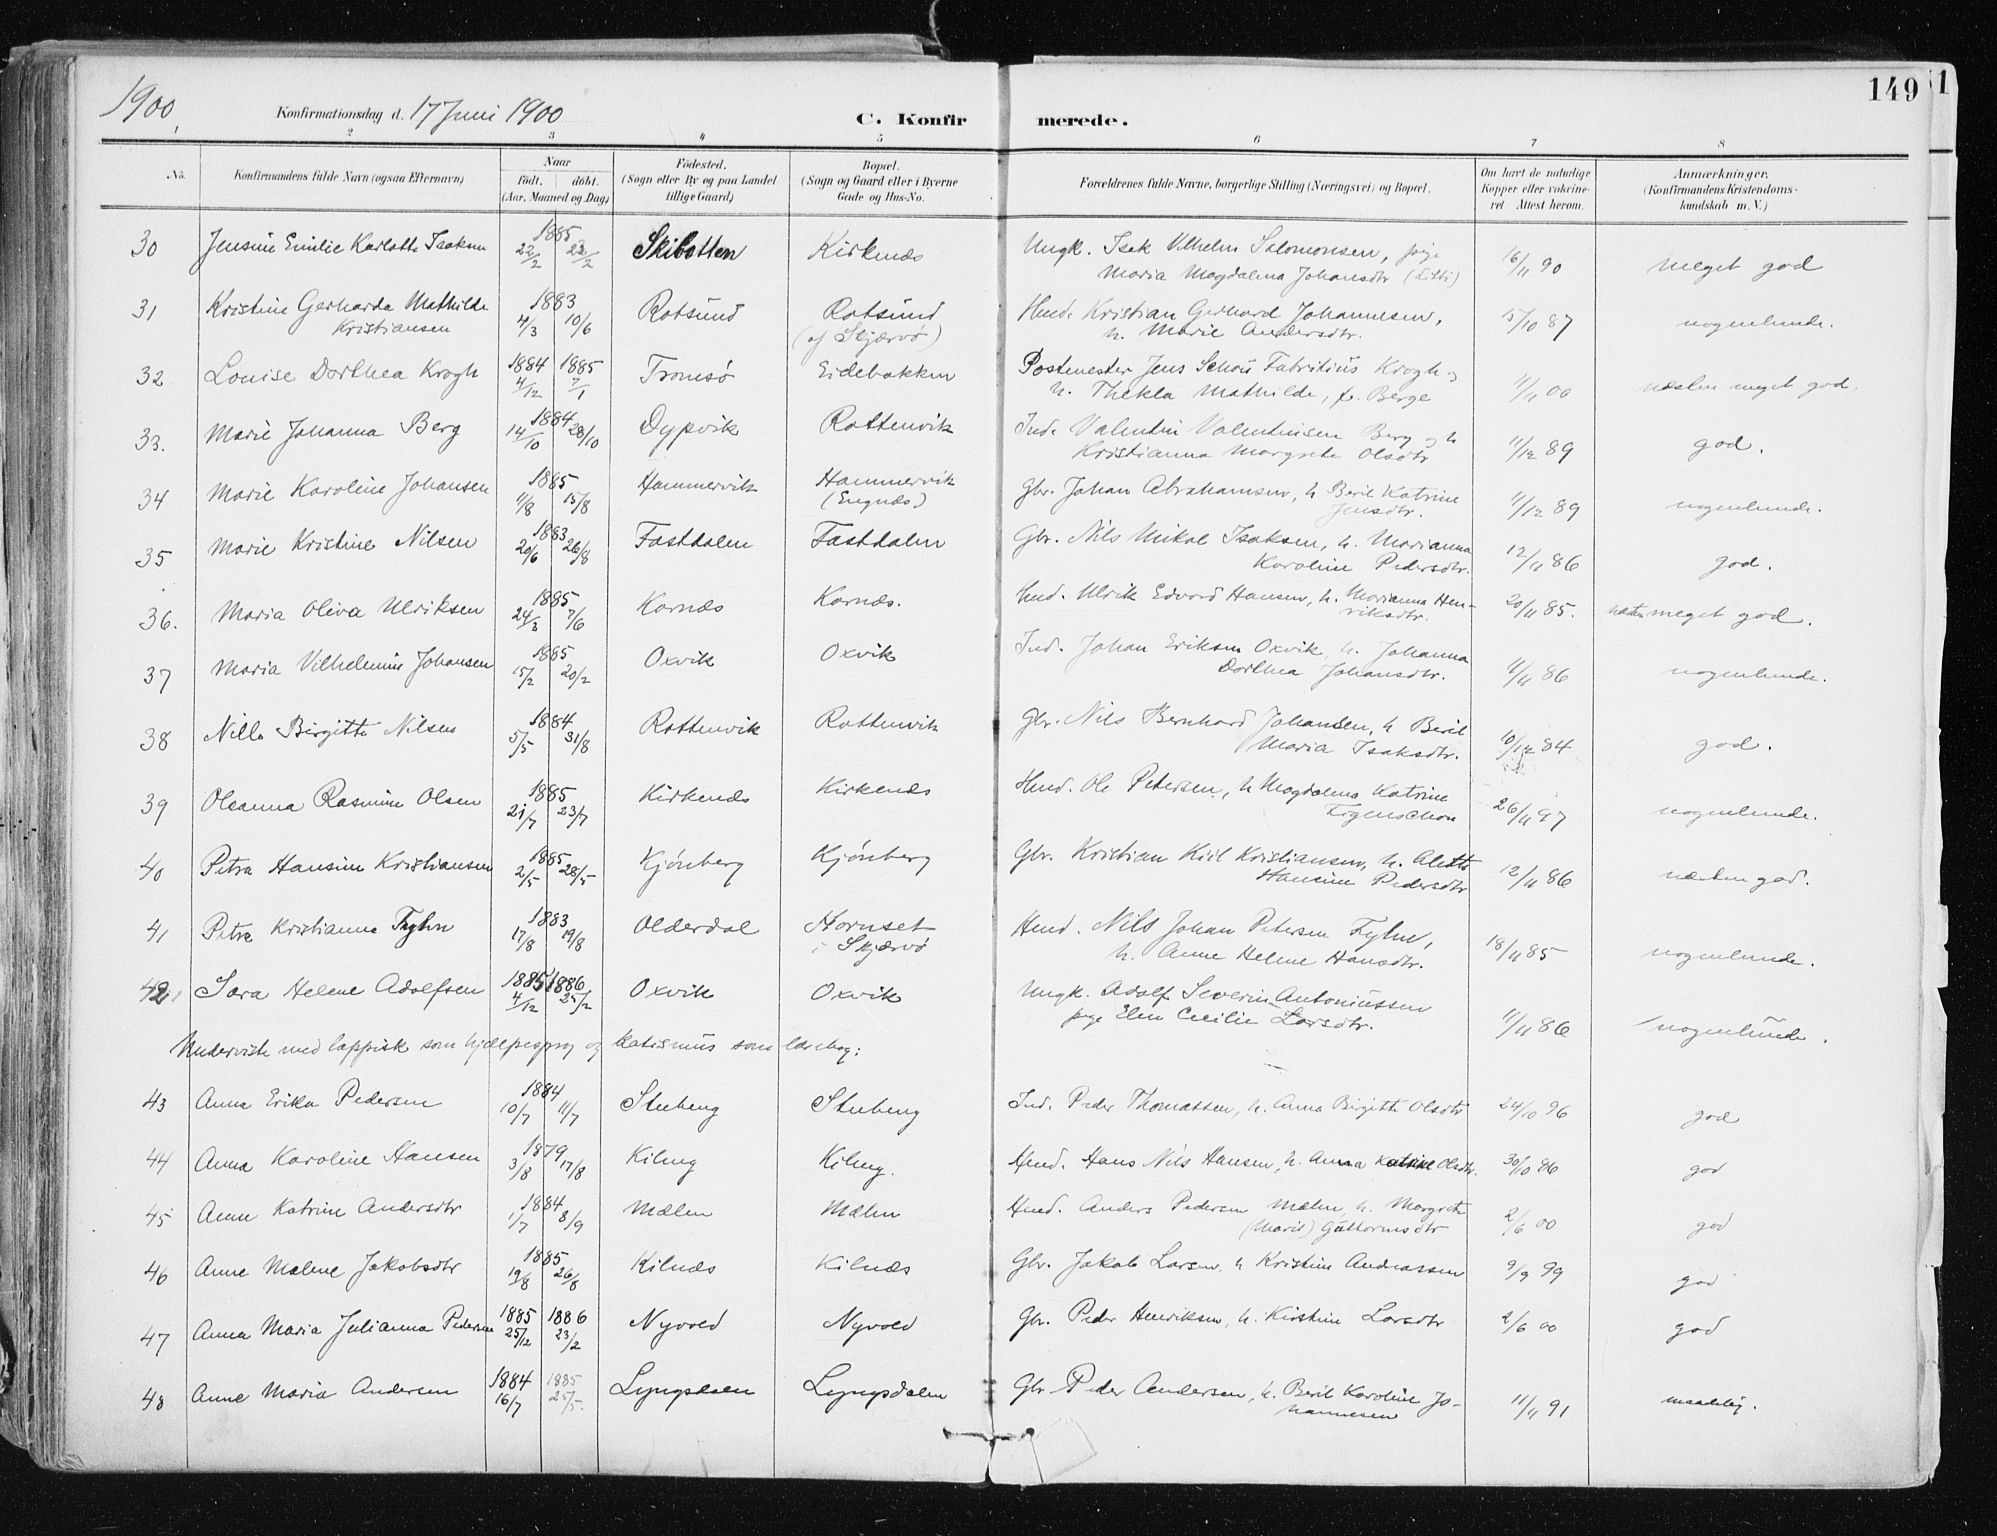 1900,
Konfirmationsdag d. 17 Juni 1900
C. Konfirmerede.
149
1
2 3 4 5 6 7 8
No. Konfirmandens fulde Navn (ogsaa Efternavn) Naar født. døbt. (Aar, Maaned og Dag) Fødested. (Sogn eller By og paa Landet tillige Gaard) Bopæl. (Sogn og Gaard eller i Byerne Gade og Hus-No. Forældrenes fulde Navne, borgerlige Stilling (Næringsvei) og Bopæl. Om havt de naturlige Kopper eller vakcineret Attest herom. Anmærkninger. (Konfirmandens Kristendomskundskab m. V.)
30 Jensine Emilie Karlotte Isaksen 1885 22/2 22/2 Skibotten Kirkenæs Ungk. Isak Vilhelm Salomonsen, pige
Maria Magdalena Johansdtr (Litti) 16/11 90 meget god
31 Kristine Gerharda Mathilde 1883 4/3 10/6 Rotsund Rotsund Hmd. Kristian Gerhard Johannesen,
Kristiansen (af Skjærvø) h. Marie Andersdtr. 15/10 87 nogenlunde.
32 Louise Dorthea Krogh 1884 4/12 1885 7/1 Tromsø Eidebakken Postmester Jens Schou Fabritius Krogh og
h. Thekla Mathilde, f. Berge 11/11 00 næsten meget god.
33. Marie Johanna Berg 1884 14/10 28/10 Dypvik Rottenvik Ind. Valentin Valentinsen Berg og h
Kristianna Margrete Olsdtr 11/12 89 god.
34 Marie Karoline Johansen 1885 11/8 15/8 Hammervik Hammervik Gbr. Johan Abrahamsen, h Beril Katrine
(Engnæs) Jensdtr. 11/12 89 nogenlunde.
35 Marie Kristine Nilsen 1883 20/6 26/8 Fastdalen Fastdalen Gbr. Nils Mikal Isaksen, h. Marianna
Karoline Pedersdtr. 12/11 86 god.
36. Maria Oliva Ulriksen 1885 24/3 7/6 Kornæs Kornæs. Hmd. Ulrik Edvard Hansen, h. Marianna Hen-
riksdtr. 20/11 85. næsten meget god.
37 Maria Vilhelmine Johansen 1885 15/2 20/2 Oxvik Oxvik Ind. Johan Eriksen Oxvik, h. Johanna
Dorthea Johansdtr. 11/11 86 nogenlunde.
38 Nille Birgitte Nilsen 1884 5/5 31/8 Rottenvik Rottenvik Gbr. Nils Bernhard Johansen, h Beril
Maria Isaksdtr. 10/12 84 god.
39 Oleanna Rasmine Olsen 1885 21/7 23/7 Kirkenæs Kirkenæs Hmd. Ole Petersen, h Magdalena Katrine
Figenschou 26/11 97 nogenlunde.
40 Petra Hansine Kristiansen 1885 2/5 28/5 Kjønberg Kjønberg Gbr. Kristian Kiil Kristiansen, h. Alette
Hansine Pedersdtr 12/11 86 næsten god.
41 Petra Kristianna Fyhn 1883 17/8 19/8 Olderdal Hornset Hmd. Nils Johan Petersen Fyhn,
i Skjærvø h. Anne Helene Hansdtr. 18/11 85 nogenlunde.
42 Sara Helene Adolfsen 1885 4/12 1886 25/2 Oxvik Oxvik Ungk. Adolf Severin Antoniussen
pige Elen Cecilie Larsdtr. 11/11 86 nogenlunde.
Underviste med lappisk som hjælpesprog og katismus som lærebog:
43 Anna Erika Pedersen 1884 10/7 11/7 Stubeng Stubeng Ind. Peder Thomassen, h. Anna Birgitte Olsdtr 24/10 96 god
44 Anna Karoline Hansen 1879 3/8 17/8 Kileng Kileng. Hmd. Hans Nils Hansen, h. Anna Katrine Olsdtr. 30/10 86 god
45 Anne Katrine Andersdtr 1884 1/7 8/9 Mælen Mælen Hmd. Anders Pedersen Mælen, h. Margrete
(Marit) Guttormsdtr 2/6 00 god
46 Anne Malene Jakobsdtr 1885 19/8 26/8 Kilnæs Kilnæs Gbr. Jakob Larsen, h Kristine Andreassen 9/9 99 god
47 Anna Maria Julianna Pedersen 1885 25/12 1886 23/2 Nyvold Nyvold Gbr. Peder Henriksen, h. Kirstine Larsdtr 2/6 00 god
48 Anne Maria Andersen 1884 16/7 1885 25/5. Lyngsdalen Lyngsdalen Gbr Peder Andersen, h. Beril Karoline Jo-
hannesen 11/11 91 maadelig.